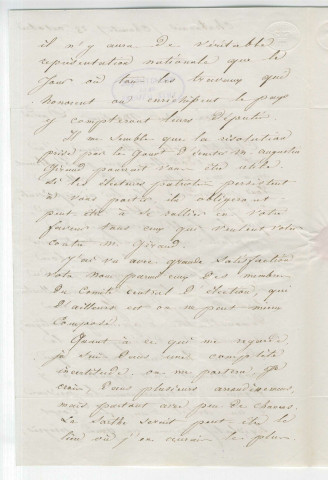 il n'y aura de véritable
représentation nationale que le
jour où tous les travaux qui
honorent ou enrichissent le pays
y compteront leurs Députés.
Il me semble que la résolution
prise par la gauche d'écarter M. augustin
Giraud pourrait vous être utile
si les électeurs patriotes persistent
à vous porter ils obligeront
peut être à se rallier en votre
faveur tous ceux qui veulent voter
contre M. Giraud.
J'ai vu avec grande satisfaction
votre nom parmi ceux des membres
du Comité central d'élection, qui
d'ailleurs est on ne peut mieux
Composé.
Quant à ce qui me regarde,
je suis dans une complète
incertitude. on me portera, je
crois dans plusieurs arrondissemens
mais partout avec peu de chances.
La Sarthe serait peut être le
lieu où j'en aurais le plus.